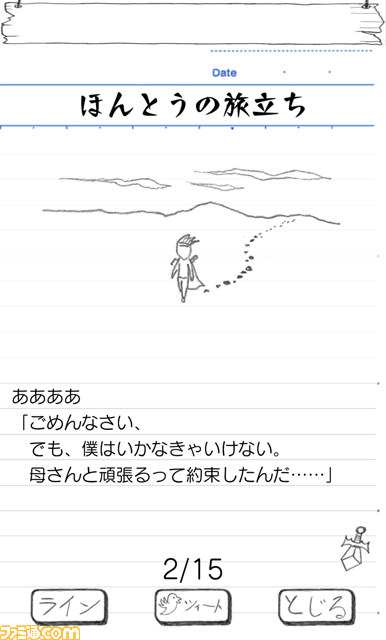 Date
ほんとうの旅立ち
ああああ
「ごめんなさい、
でも、僕はいかなきゃいけない。
母さんと頑張るって約束したんだ……」
2/15
ライン
ツイート
とじる
ファミ通.com